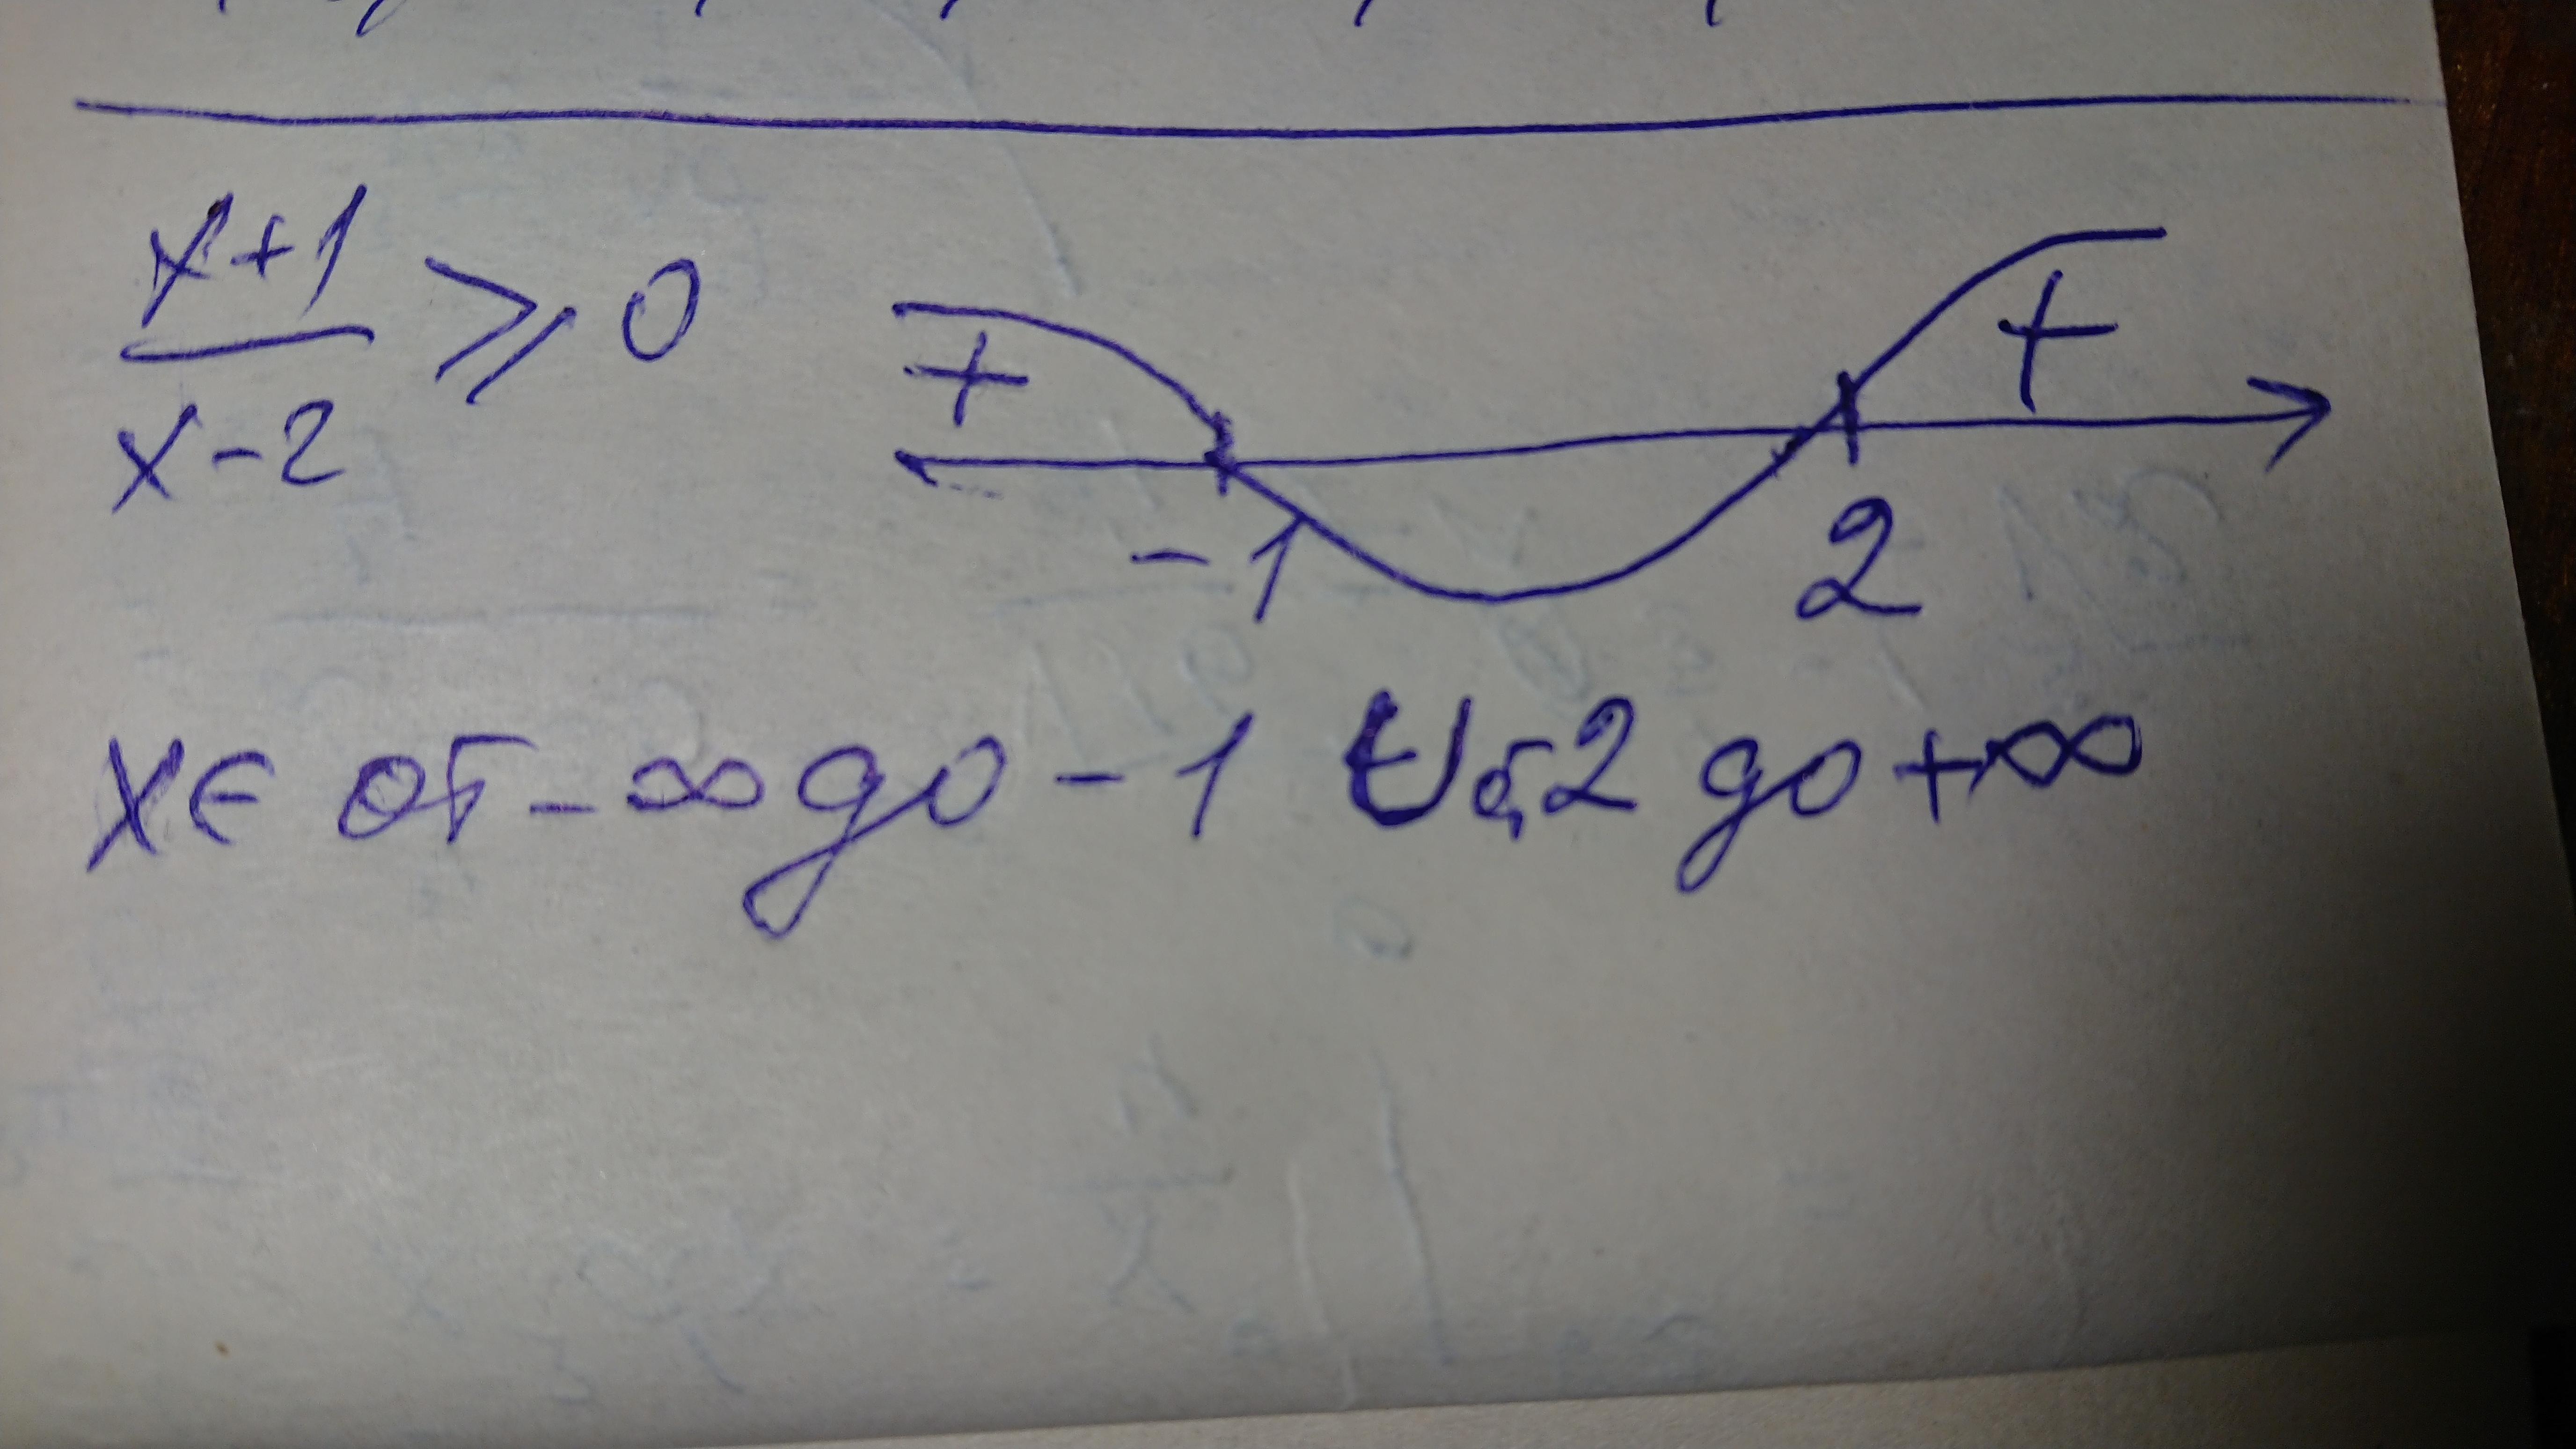 x+1
x-2 ⩾ 0
+ +
-1 2
x∈ от -∞ до -1 ∪ от 2 до +∞